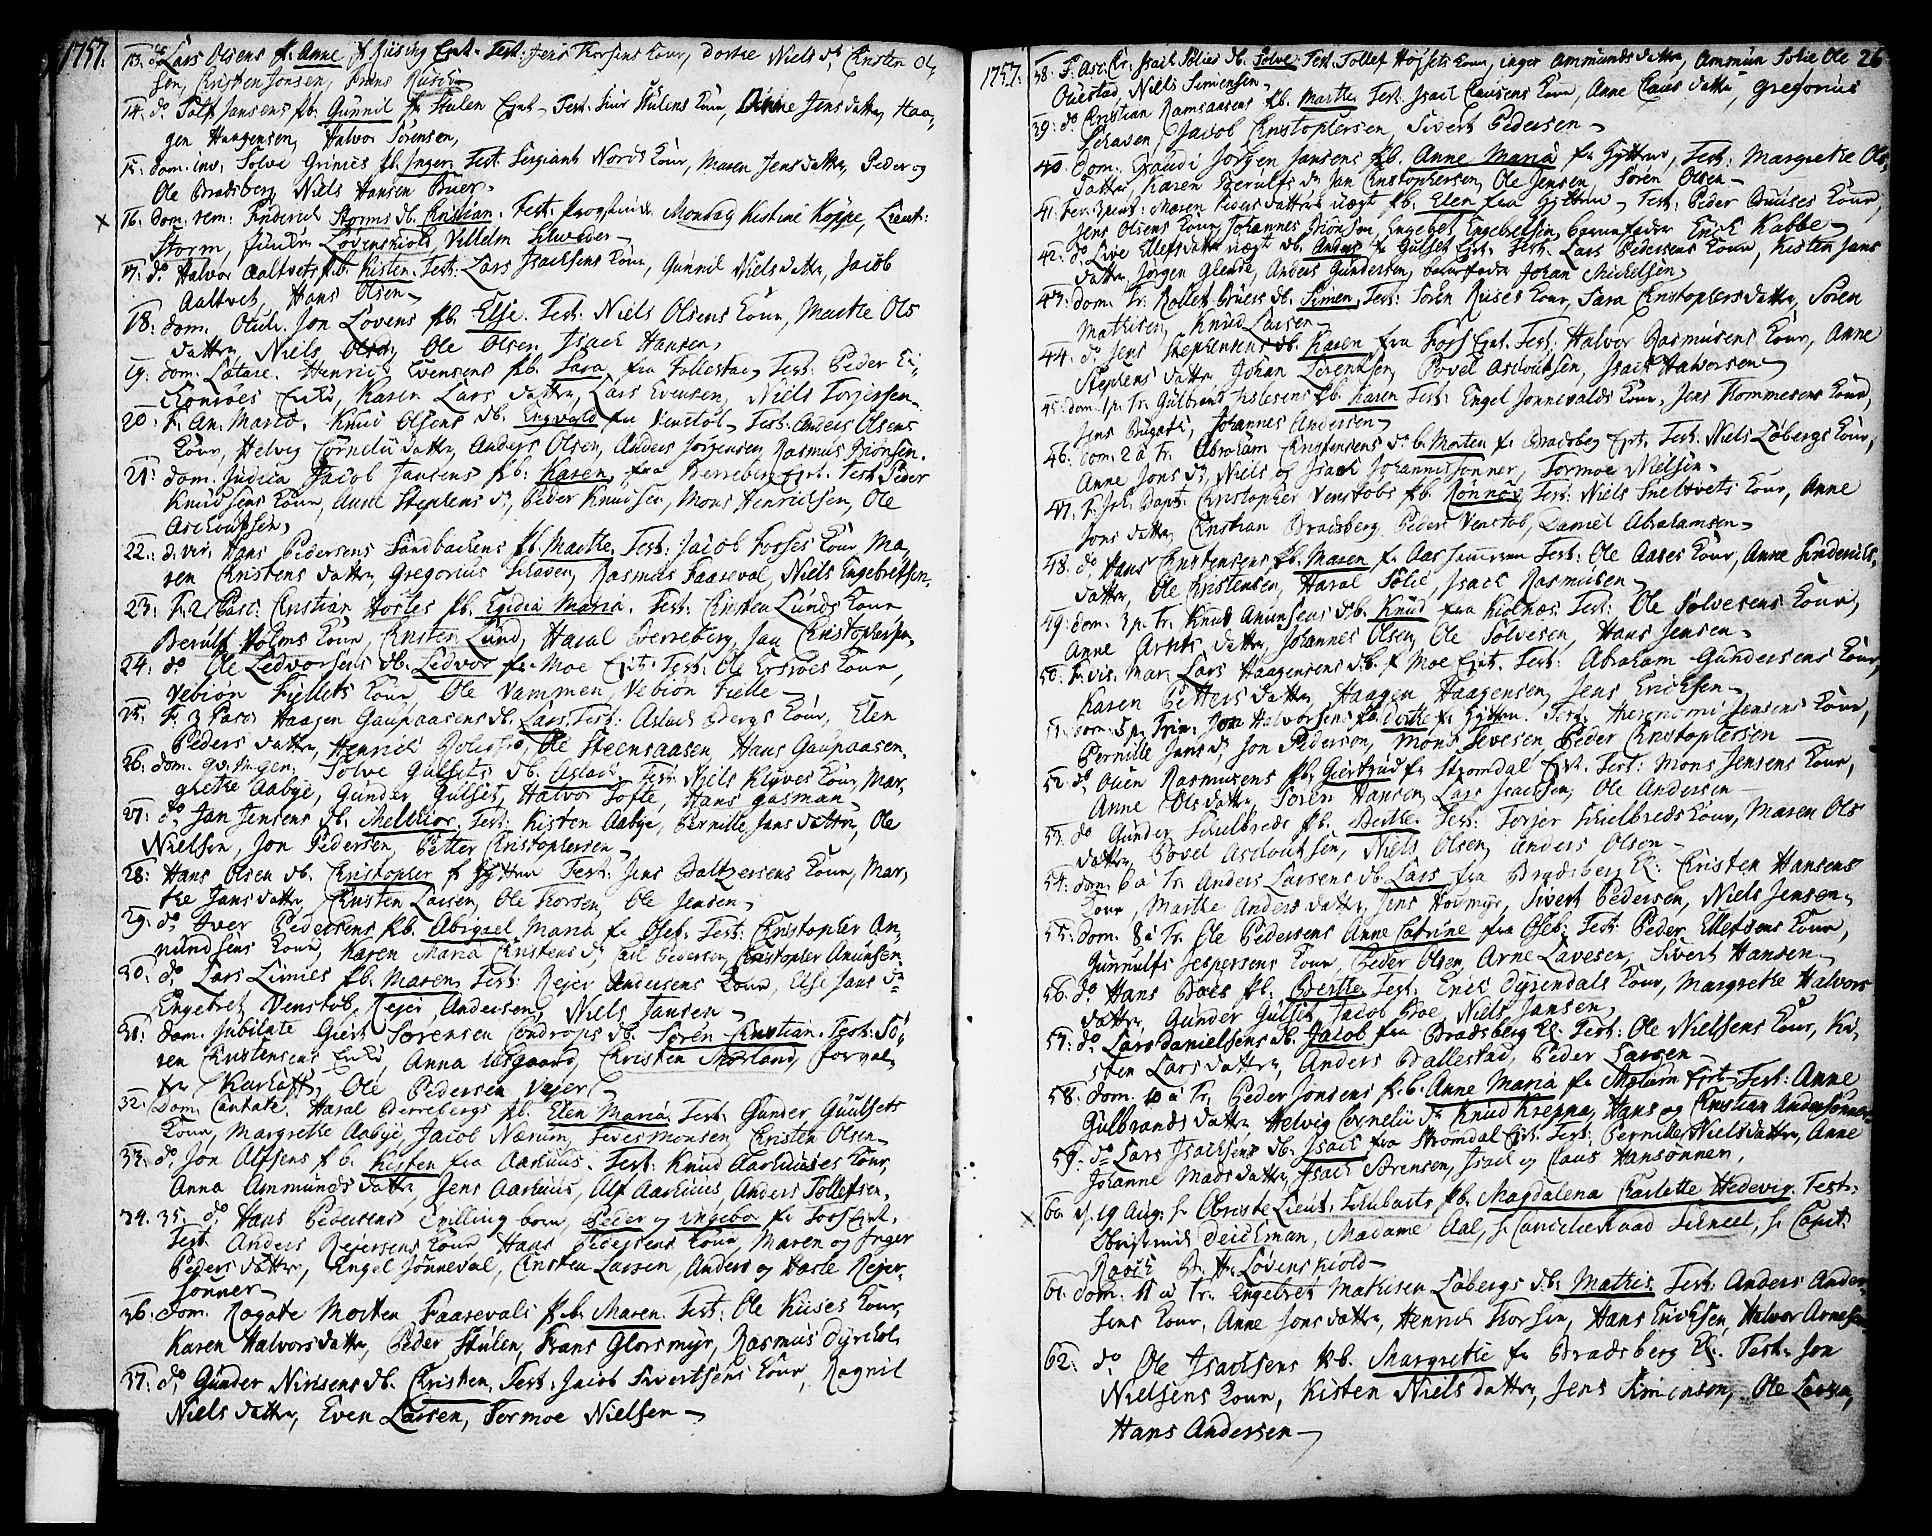 1757.
13. do Lars Olsens pb. Anne fr Riising Ejet. Test: Jens Thorsens Kone, Dorthe Niels dr, Christen Ol,
sen, Christen Jonsen, Frans Rusch
14. do Jansens pb. Gunnil fr Stulen Ejet. Test: Siur Stulens Kone, Anne Jens datter, Haa,
gen Haagensen, Halvor Sørensen,
15. dom. inv. Solve Grinies pb. Inger. Test: Sergiant Nords Kone, Maren Jens datter, Peder og
Ole Bradsberg, Niels Hansen Buer.
16. dom. rem: Friderich Storms db. Christian. Test: Mondag, Kistine Koppe, Lieut:
Storm, Løvenskiold, Vilhelm Schrøder
17. do Halvor Aaltvets pb. Kisten. Test: Lars Isachsens Kone, Gunnil Niels datter, Jacob
Aaltvet, Hans Olsen
18. dom. Oculi. Jon Lovens pb. Else. Test: Niels Olsens Kone, Marthe Ols
datter, Niels Olsen, Ole Olsen, Isach Hansen,
19. dom. Lætare. Henrich Evensens pb. Sara fra Follestad, Test: Peder
Enke, Karen Lars datter, Lars Evensen, Niels Torjersen.
20. F. An. Mariæ. Knud Olsens db. Engvold fra Venstøb. Test: Anders Olsens
Kone, Helvig Cornelii datter, Anders Olsen, Anders Jørgensen, Rasmus Biønsen.
21. dom. Judica Jacob Jansens pb. Karen fra Berreberg Ejet. Test: Peder
Knudsens Kone, Anne Stephens dr, Peder Knudsen, Mons Henrichsen, Ole
Aslouphsen,
22. d. vir. Hans Pedersens Sandbachens pb. Marthe. Test: Jacob Fosses Kone, Ma,
ren Christens datter, Gregorius Schaven, Rasmus Faareval, Niels Engebretsen.
23. F. 2 Pasc: Christian Hostes pb. Egidia Maria. Test: Christen Lunds Kone
Berulf Holms Kone, Christen Lund, Haral Berreberg, Jan Christophersen
24. do Ole Ledvorsens db. Ledvor fr. Moe Ejet. Test: Ole Kone,
Vebiøn Fiellets Kone, Ole Vammen, Vebiøn Fielle
25. F. 3 Pasc Haagen Gaupaasens db. Lars. Test: Aslach Bergs Kone, Elen
Peders datter, Henrich, Ole Steensaasen, Hans Gaupaasen.
26. dom. qvasimgen. Solve Gulsets db. Aslach, Test: Niels Klovves Kone, Mar,
grethe Aabye, Gunder Gulset, Halvor Tofte, Hans Gasman
27. do Jan Jensens db. Melchior. Test: Kisten Aabye, Pernille Jans datter, Ole
Nielsen, Jon Pedersen, Petter Christophersen
28. Hans Olsen db. Christopher fr Hytten Test: Jens Baltzersens Kone, Mar,
the Jans datter, Christen Larsen, Ole Thorsen, Ole Jensen,
29. do Iver Pedersens pb. Abigael Maria fr Oseb. Test: Christopher An,
nundsens Kone, Karen Maria Christens dr, Carl Pedersen, Christopher Anunsen
30. do Lars Limies pb. Maren, Test: Rejer Andersens Kone, Else Jans dr
Engebret Venstøb, Rejer Andersen, Niels Jansen
31. dom. Jubilate Giert Sørensen Condrops db. Søren Christian. Test: Sø,
ren Christensens Enke, Anna Usgaard, Christen Morland, forval,
ter Karhoff, Ole Pedersen Vejer
32. Dom. Cantate. Haral Berrebergs pb. Elen Maria Test: Gunder Gulsets
Kone, Margrethe Aabye, Jacob Nærum, Monsen, Christen Olsen
33. do Jon Alfsens pb. Kisten fra Aarhuus. Test: Knud Aarhuuses Kone,
Anna Ammunds datter, Jens Aarhuus, Alf Aarhuus, Anders Tollefsen,
34. 35. do Hans Pedersens Tvilling born, Peder og Ingebor fr Foss Ejet.
Test: Anders Rejersens Kone Hans Pedersens Kone, Maren og Inger
Peders døttre, Engel Jønneval, Christen Larsen, Anders og Hasle Rejer-
sønner
36. dom. Rogate Morten Faarevals pb. Maren. Test: Ole Riises Kone,
Karen Halvors datter, Peder Stulen, Frans Glorsmyr, Rasmus Dyrekol,
37. do Gunder Nirisens db. Christen, Test: Jacob Sivertsens Kone, Ragnil
Niels datter, Even Larsen, Tormoe Nielsen
1757.
26
38. F. Asc. Chr. Isach Solies db. Solve. Test: Tollef Højsets Kone, Inger Ammunds datter, Ammun Solie Ole
Ouestad, Niels Simensen
39. do Christian Ramsaasens pb. Marthe, Test: Isach Clausens Kone, Anne Claus datter, Gregorius
Schaven, Jacob Christophersen, Sivert Pedersen
40. dom. Exaudi Jørgen Jansens pb. Anne Maria fr Hytten, Test: Margrethe Ols,
datter, Karen Berulfs dr Jan Christophersen, Ole Jensen, Søren Olsen
41. Fer. 3 pent: Maren Peders datters uægt pb. Elen fra Hytten. Test: Peder Buuses Kone,
Jens Olsens Kone, Johannes Biønsen, Engebet Engebretsen, barnefader Erich Kabbe
42. do Live Ellefsdatter uægt db. Anders fr Gulset Ejet. Test: Lars Pedersens Kone, Kisten Jans
datter, Jørgen Glende, Anders Gundersen, barnefader Johan Michelsen,
43. dom. Tr. Rollef Buers db. Simen, Test: Søren Riises Kone, Sara Christophersdatter, Søren
Mathisen, Knud Larsen
44. do Jens Stephensens db. Karen fra Foss Ejet. Test: Halvor Rasmusens Kone, Anne
Stephens datter, Johan Lorentsen, Povel Aslouphsen, Isach Halvorsen
45. dom. 1 p. Tr. Gulbrand pb. Karen Test: Engel Jønnevalds Kone, Jens Thommesens Kone,
Jens Bugats, Johannes Andersen
46. dom. 2 a Tr. Abraham Christensens db. Morten fr Bradsberg Ejet. Test: Niels Løbergs Kone,
Anne Jons dr, Niels og Isach Johannissønner, Tormoe Nielsen.
47. F. Joh. Bapt: Christopher Venstøbs pb. Rønnøv, Test: Niels Sneltvets Kone, Anne
Jons datter, Christian Bradsberg, Peder Venstøb, Daniel Abrahamsen
48. do Hans Christensens pb. Maren fr Aas Test: Ole Aases Kone, Anne Friderichs,
datter, Ole Christensen, Haral Solie, Isach Rasmusen
49. dom. 3 p. Tr. Knud Anunsens db. Knud fra Kiolnæs, Test: Ole Solvesens Kone,
Anne datter, Johannes Olsen, Ole Solvesen, Hans Jensen
50. F. vis. Mar. Lars Haagensens db. fr Moe Ejet. Test: Abraham Gundersens Kone,
Karen Petters datter, Haagen Haagensen, Jens Erichsen
51. dom. 5 p. Trin. Jon Halvorsens pb. Dorthe fr Hytten. Test: Hieronimi Jensens Kone,
Pernille Jans dr, Jon Pederson, Mons Ivesen, Peder Christophersen
52. do Ouen Rasmusens pb. Giertrud fr Strømdal Ejet. Test: Mons Jensens Kone,
Anne Ols datter, Søren Hansen, Lars Isachsen, Ole Andersen
53. do Gunder Schilbreds pb. Berthe. Test: Torjer Schilbreds Kone, Maren Ols
datter, Povel Aslouphsen, Niels Olsen, Anders Olsen
54. dom. 6 a Tr. Anders Larsens db. Lars fra Bradsberg El. Christen Hansens
Kone, Marthe Anders datter, Jens Hovmyr, Sivert Pedersen, Niels Jensen,
55. dom. 8 a Tr. Ole Pedersens Anne Catrine fra Oseb. Test: Peder Ellefsens Kone,
Gunnulfs Jespersens Kone, Peder Olsen, Arne Lavesen, Sivert Hansen
56. do Hans Boes pb. Berthe, Test: Erich Dyrendals Kone, Margrethe Halvors
datter, Gunder Gulset, Jacob Boe, Niels Jansen,
57. do Lars Danielsens db. Jacob fra Bradsberg El. Test: Ole Nielsens Kone, Ki,
sten Lars datter, Anders Ballestad, Peder Larsen
58. dom. 10 a Tr. Peder Jonsens pb. Anne Maria fr Mælum Ejet. Test: Anne
Gulbrands datter, Helvig Cornelii dr Knud Kreppa, Hans og Christian Andersønner
59. do Lars Isachsens db. Isach fra Strømdal Ejet. Test: Pernille Nielsdatter, Anne
Johanne Mads datter, Isach Sørensen, Isach og Claus Hansønner,
60. d. 19 Aug. hr Obriste Lieut. Schubarts pb. Magdalena Charlotte Hedevig. Test:
Deichman, Madame Aal, hr Cancelie Raad Scheel, hr Capit:
Raasch Hr. H. Løvenskiold
61. dom. 11 a Tr. Engebret Mathisen Løbergs db. Mathis. Test: Anders Ander,
sens Kone, Anne Jonsdatter, Henrich Thorsen, Hans Erichsen, Halvor Arnesen
62. do Ole Isachsens pb. Margrethe fr Bradsberg El. Test: Jon
Nielsens Kone, Kisten Niels datter, Jens Simenson, Ole Larsen,
Hans Andersen